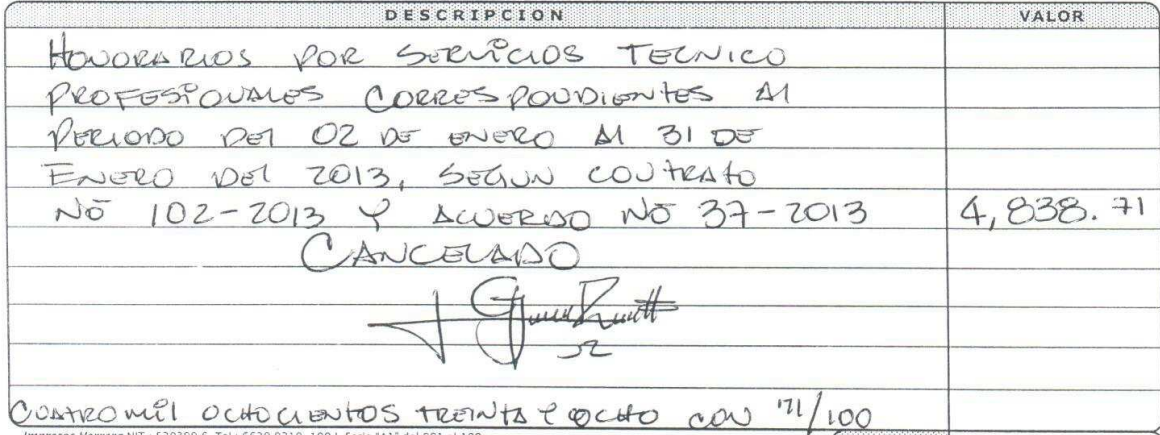 DESCRIPCION VALOR
HONORARIOS POR SERVICIOS TECNICO
PROFESIONALES CORRESPONDIENTES Al
PERIODO DEl 02 DE ENERO Al 31 DE
ENERO DEl 2013, SEGUN CONTRATO
NO 102-2013 Y ACUERDO NO 37-2013 4,838.71
CANCELADO
CUATRO mil OCHOCIENTOS TREINTA Y OCHO CON 71/100